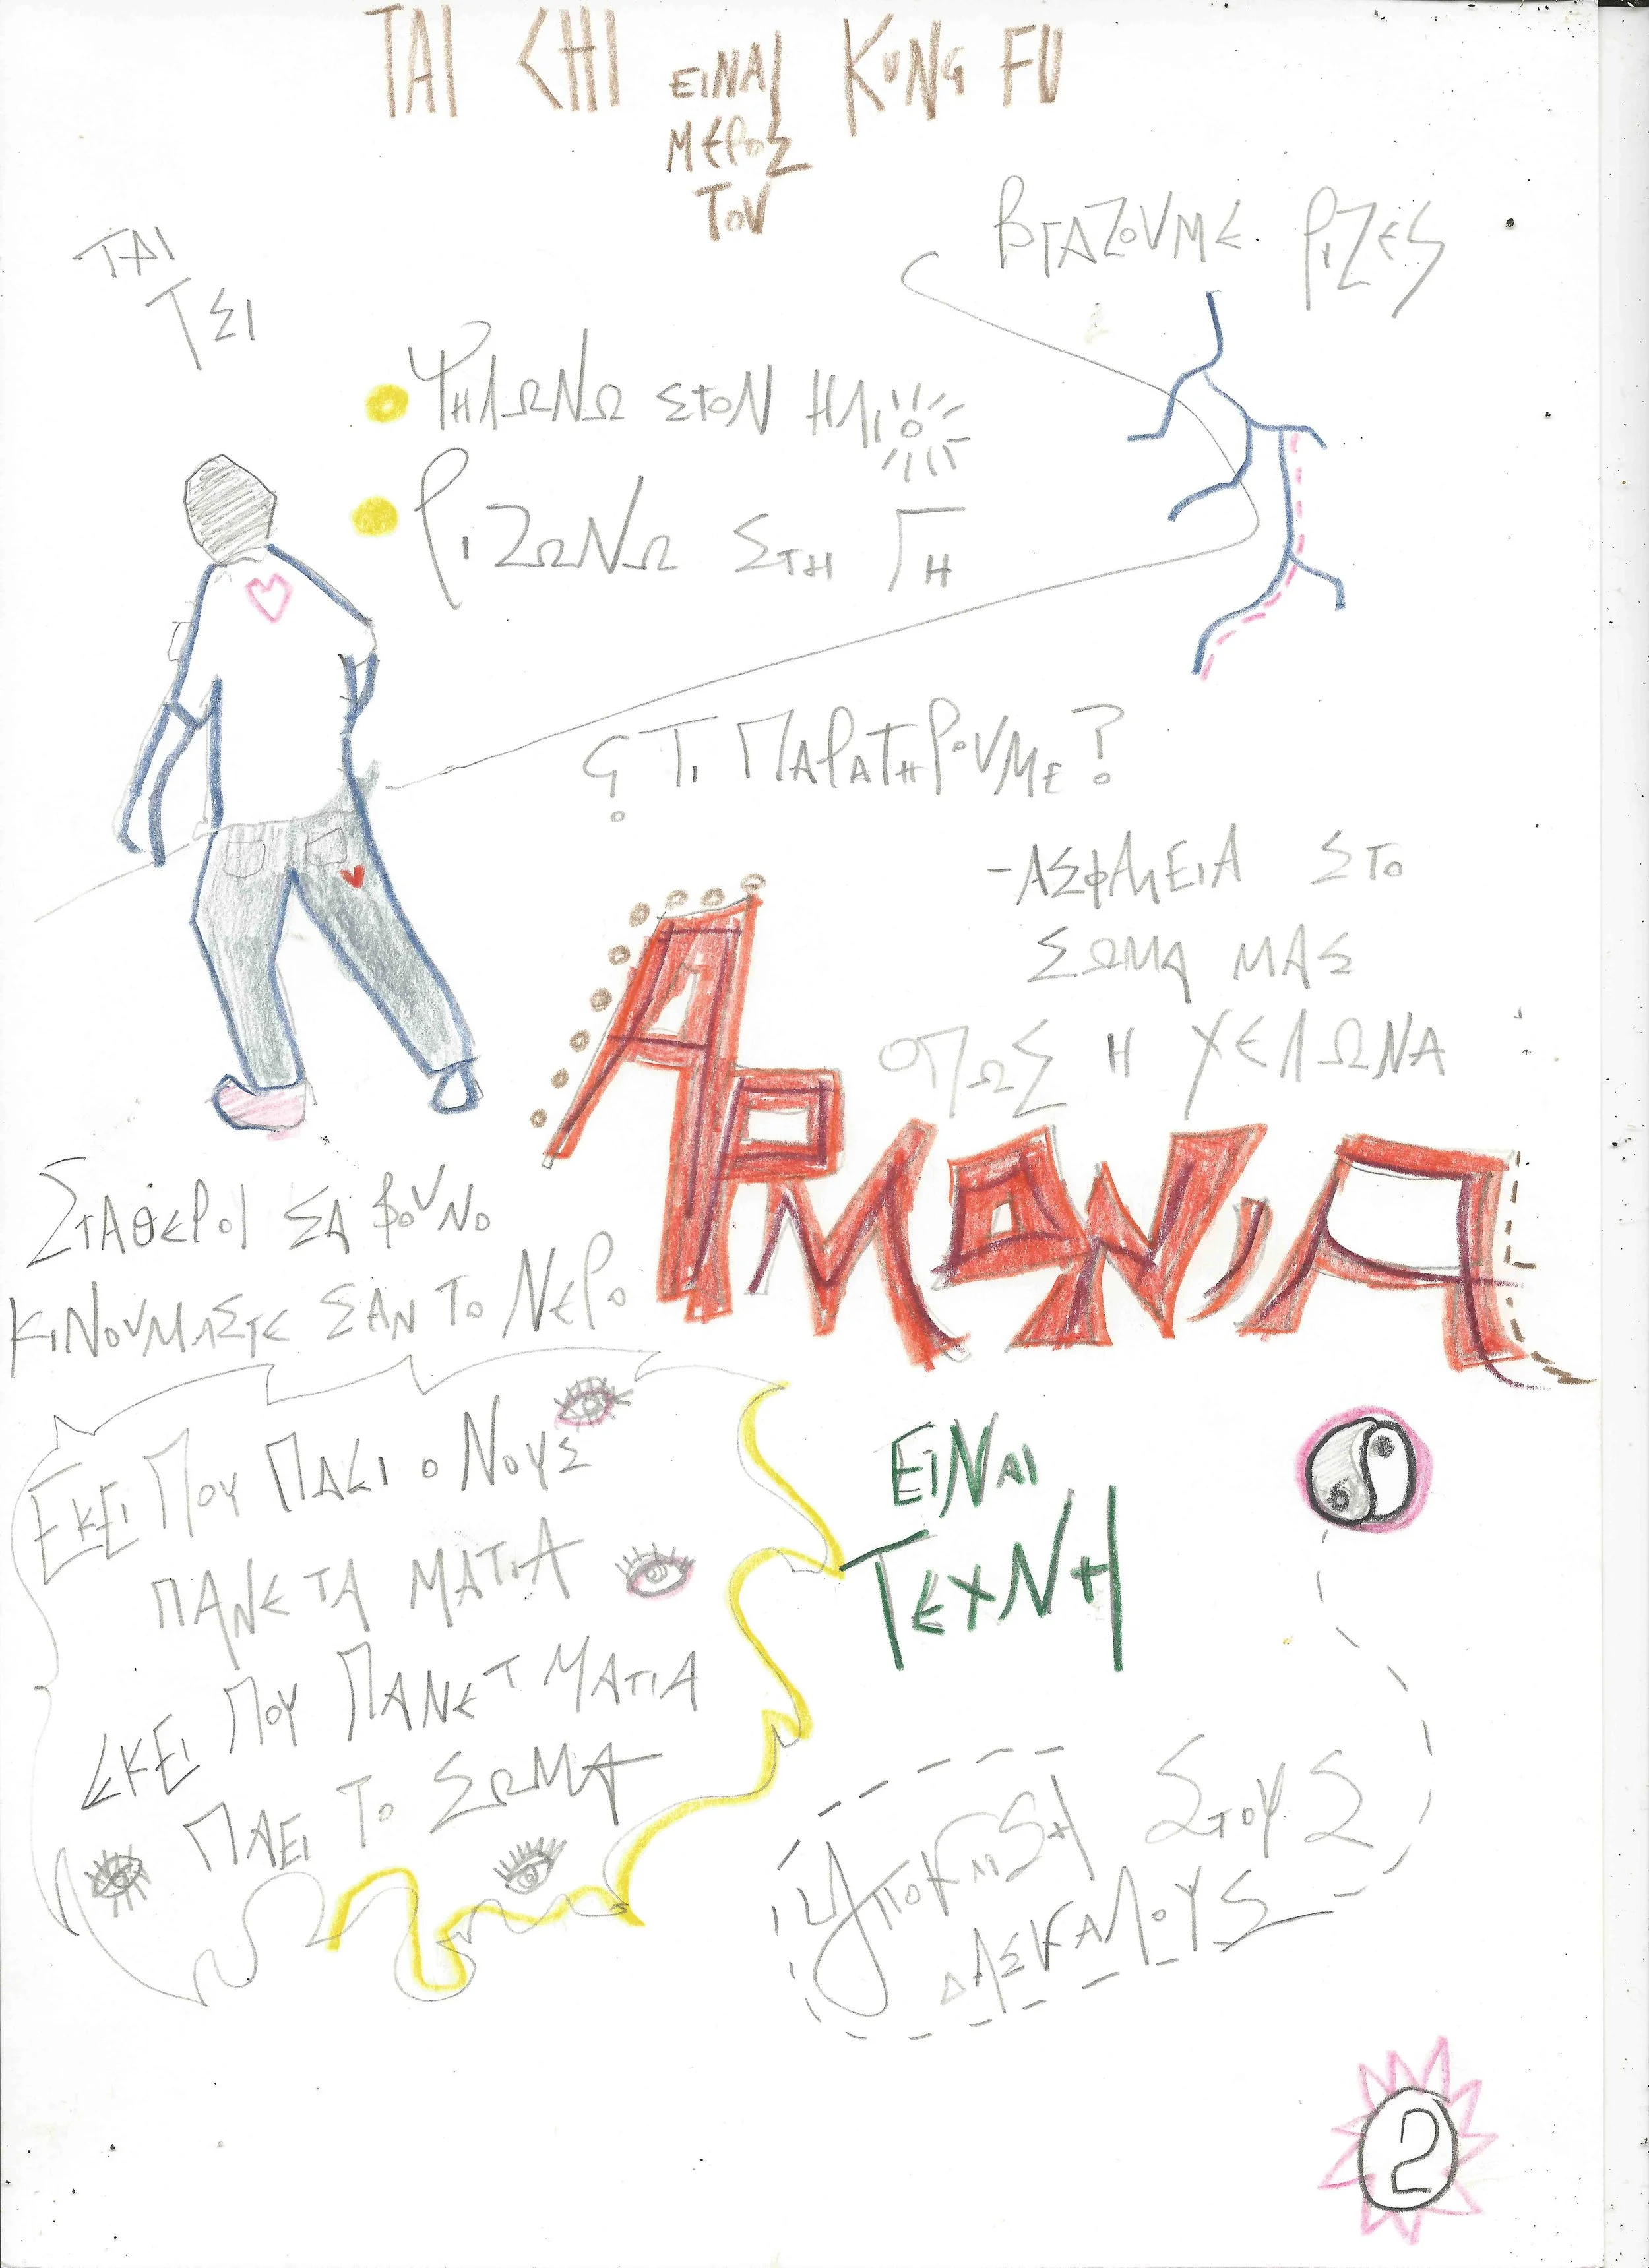 TAI CHI ΕΙΝΑΙ KUNG FU
ΜΕΡΟΣ
ΤΟΥ
ΒΓΑΖΟΥΜΕ ΡΙΖΕΣ
ΤΑΙ
ΤΣΙ
ΨΗΛΩΝΩ ΣΤΟΝ ΗΛΙΟ
ΡΙΖΩΝΩ ΣΤΗ ΓΗ
¿ ΤΙ ΠΑΡΑΤΗΡΟΥΜΕ?
-ΑΣΦΑΛΕΙΑ ΣΤΟ
ΣΩΜΑ ΜΑΣ
ΟΠΩΣ Η ΧΕΛΩΝΑ
ΑΡΜΟΝΙΑ
ΣΤΑΘΕΡΟΙ ΣΑ ΒΟΥΝΟ
ΚΙΝΟΥΜΑΣΤΕ ΣΑΝ ΤΟ ΝΕΡΟ
ΕΚΕΙ ΠΟΥ ΠΑΕΙ Ο ΝΟΥΣ
ΠΑΝΕ ΤΑ ΜΑΤΙΑ
ΕΚΕΙ ΠΟΥ ΠΑΝΕ Τ ΜΑΤΙΑ
ΠΑΕΙ ΤΟ ΣΩΜΑ
ΕΙΝΑΙ
ΤΕΧΝΗ
ΥΠΟΚΛΙΣΗ ΣΤΟΥΣ
ΔΑΣΚΑΛΟΥΣ
2